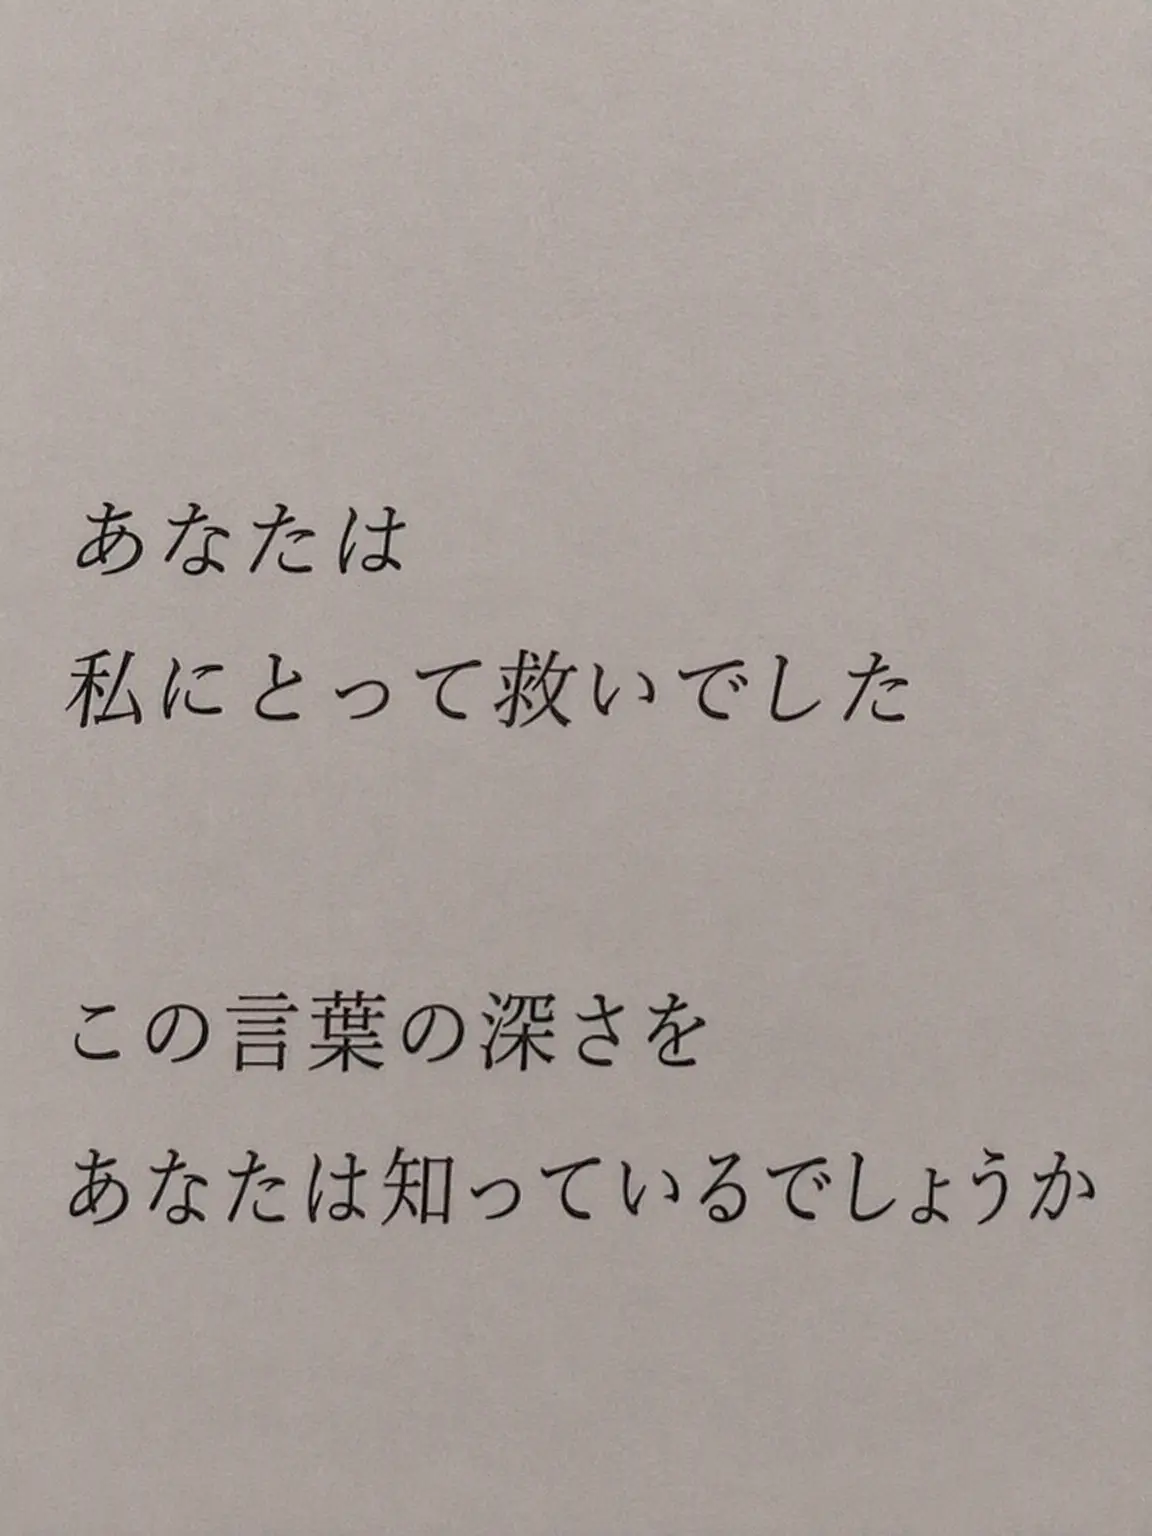 あなたは
私にとって救いでした
この言葉の深さを
あなたは知っているでしょうか